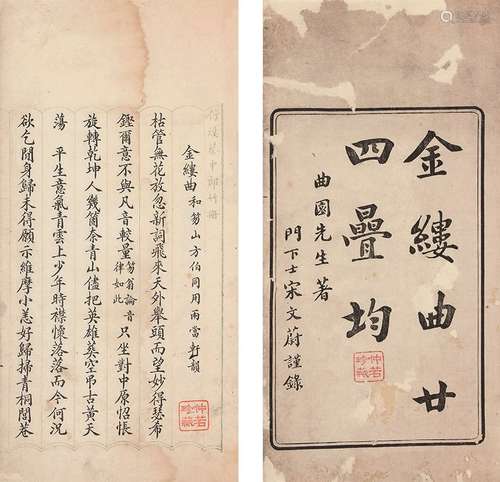 金縷曲廿
四疊均
曲園先生著
門下士宋文蔚謹錄
仲若珍藏
仿漢蔡中郎竹冊
金縷曲 和笏山方伯同用兩當軒韻
枯管無花放忽新詞飛來天外舉頭而望妙得瑟希
鏗爾意不與凡音較量 笏翁論音律如此 只坐對中原怊悵
旋轉乾坤人幾箇奈青山儘把英雄葬空弔古黃天
蕩 平生意氣青雲上少年時襟懷落落而今何況
欲乞閒身歸未得願示維摩小恙好歸掃青桐閒巷
仲若珍藏